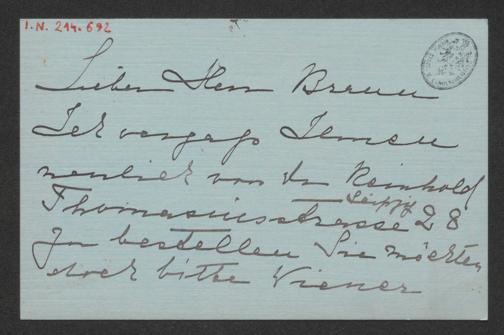 I.N. 214.692
Lieber Herr Breuer
Ich vergass Ihnen
neulich von der Reinhold
Leipzig
Thomasiusstrasse 28
zu bestellen Sie möchten
doch bitte Wiener